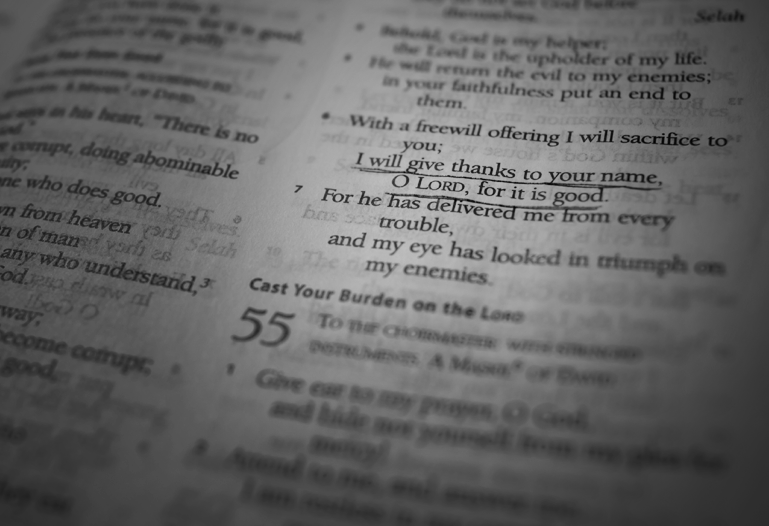 good.
There is no
as in his heart, "There is no
corrupt, doing abominable
ne who does good.
n from heaven
n of man
any who understand,³
God.
way;
ecome corrupt;
good,
themselves. Selah
Behold, God is my helper;
the Lord is the upholder of my life.
He will return the evil to my enemies;
in your faithfulness put an end to
them.
With a freewill offering I will sacrifice to
you;
I will give thanks to your name,
O LORD, for it is good.
7 For he has delivered me from every
trouble,
and my eye has looked in triumph on
my enemies.
Cast Your Burden on the LORD
55 TO THE CHOIRMASTER: WITH STRINGED
INSTRUMENTS. A MASKIL OF DAVID.
1 Give ear to my prayer, O God,
and hide not yourself from my plea for
mercy!
2 Attend to me, and answer me;
I am restless in